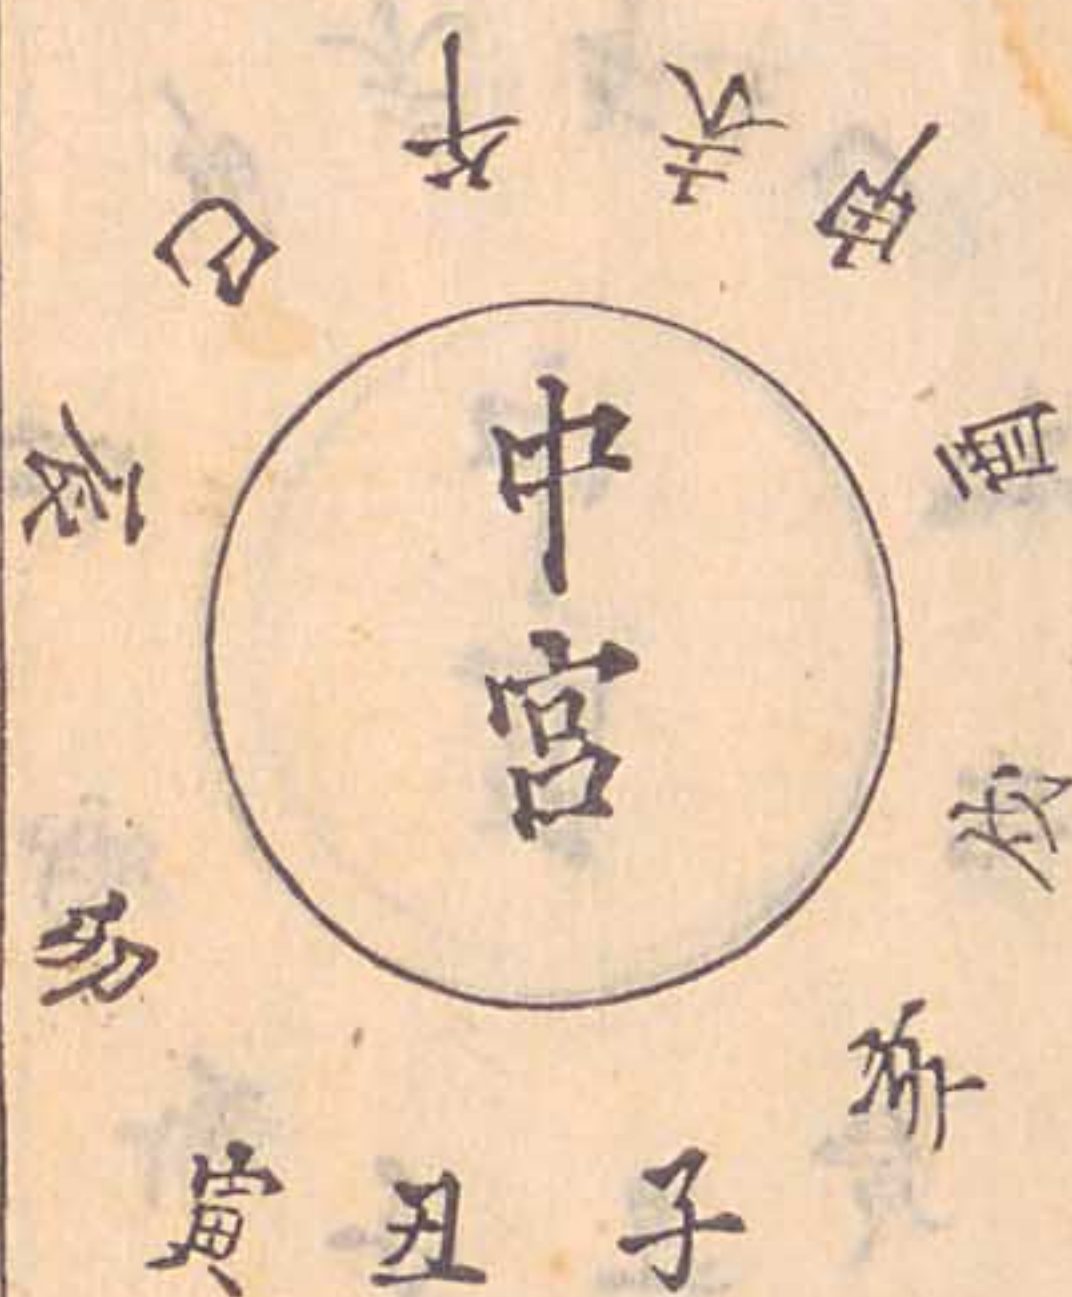 中宮
子
丑
寅
卯
辰
巳
午
未
申
酉
戌
亥